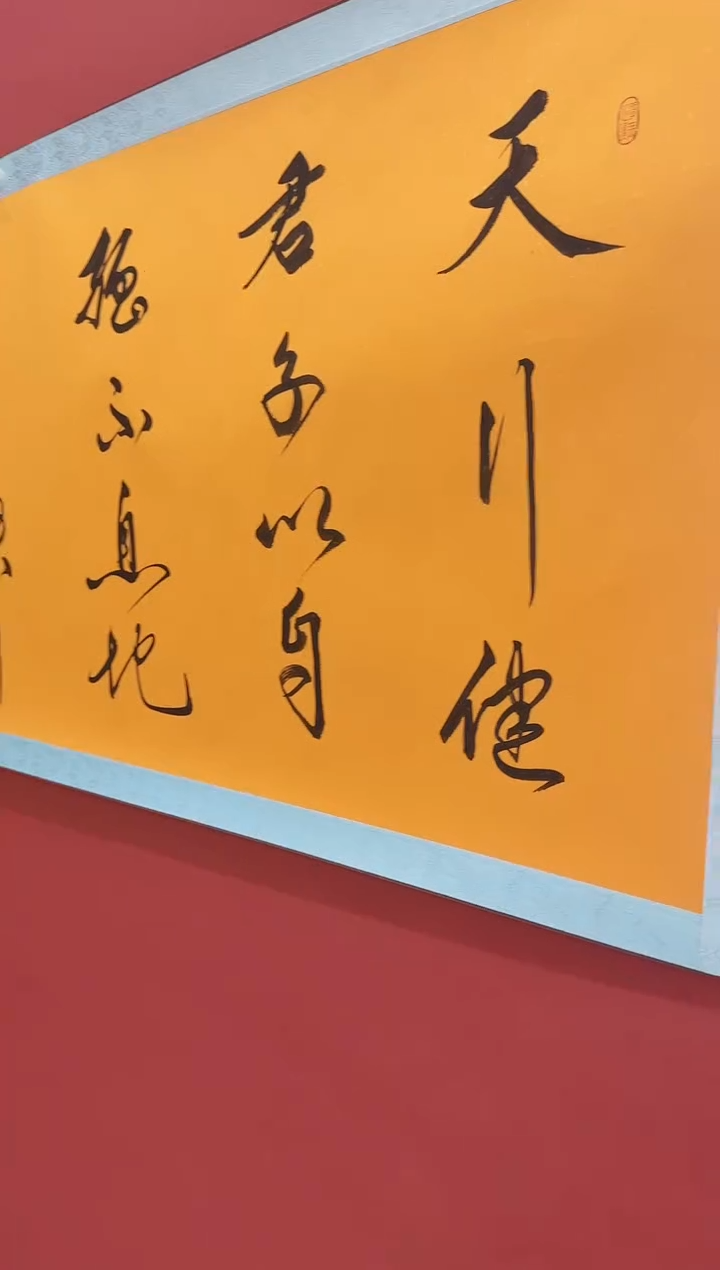 天行健
君子以自
强不息地